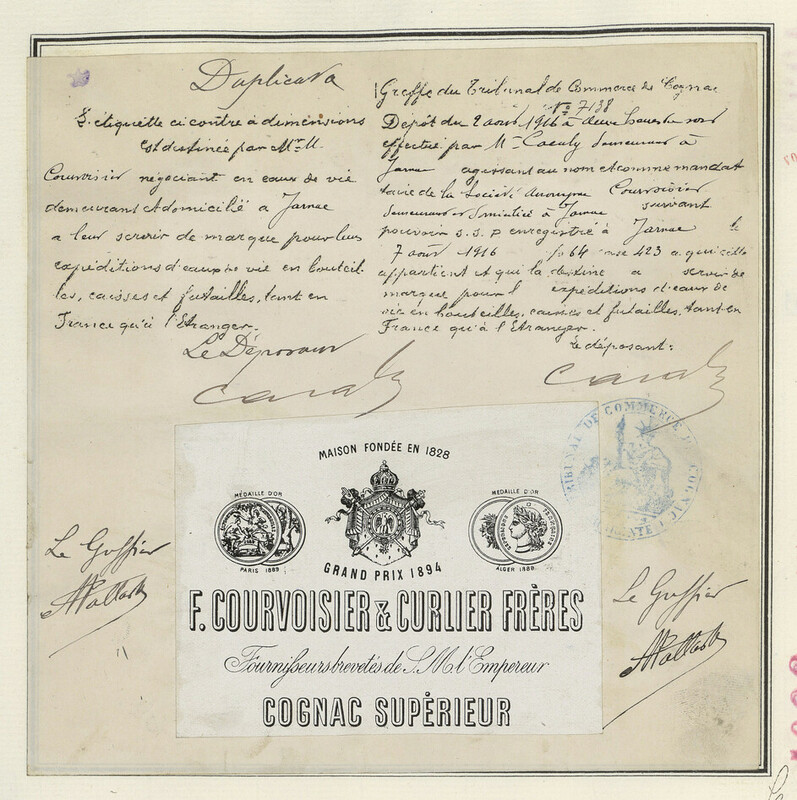 Duplicata
L'étiquette ci contre à dimensions
est destinée par Mr. M.
Courvoisier négociant en eaux de vie
demeurant et domicilié a Jarnac
a leur servir de marque pour leurs
expéditions d'eaux de vie en bouteil-
les, caisses et futailles, tant en
France qu'à l'Etranger.
Le Déposant
Greffe du Tribunal de Commerce de Cognac
No 7138
Depôt du 2 aout 1916 à deux heures
effectué par Mr demeurant à
Jarnac agissant au nom et comme mandat
taire de la Société Anonyme Courvoisier
demeurant et domicilié à Jarnac suivant
pouvoir s.s.p enregistré à Jarnac le
7 aout 1916 fo 64 case 423 a qui elle
appartient et qui la destine a servir de
marque pour l expéditions d'eaux de
vie en bouteilles, caisses et futailles, tant en
France qu'à l'Etranger.
Le déposant:
TRIBUNAL DE COMMERCE DE COGNAC
MAISON FONDÉE EN 1828
MÉDAILLE D'OR
MÉDAILLE D'OR
PARIS 1889
GRAND PRIX 1894
ALGER 1888
F. COURVOISIER & CURLIER FRÈRES
Fournisseurs brevetés de S.M. l'Empereur
COGNAC SUPÉRIEUR
Le Greffier
Le Greffier